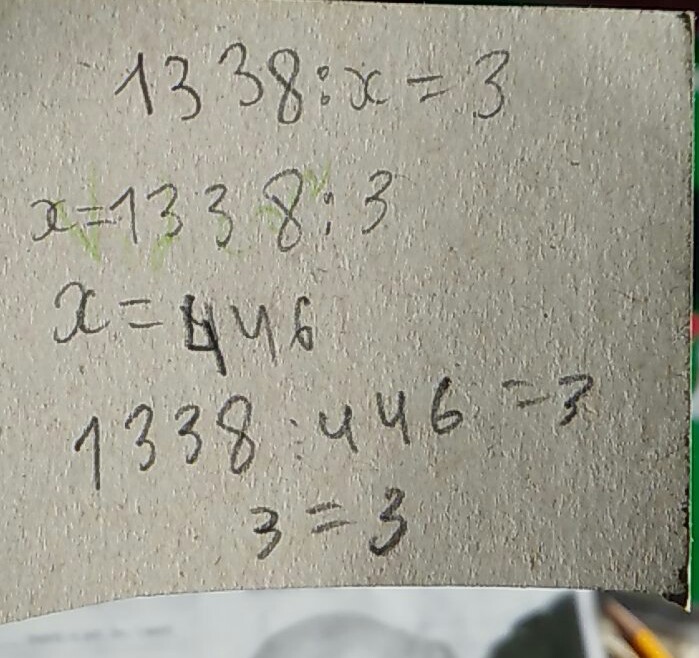 1338:x=3
x=1338:3
x=446
1338:446=3
3=3